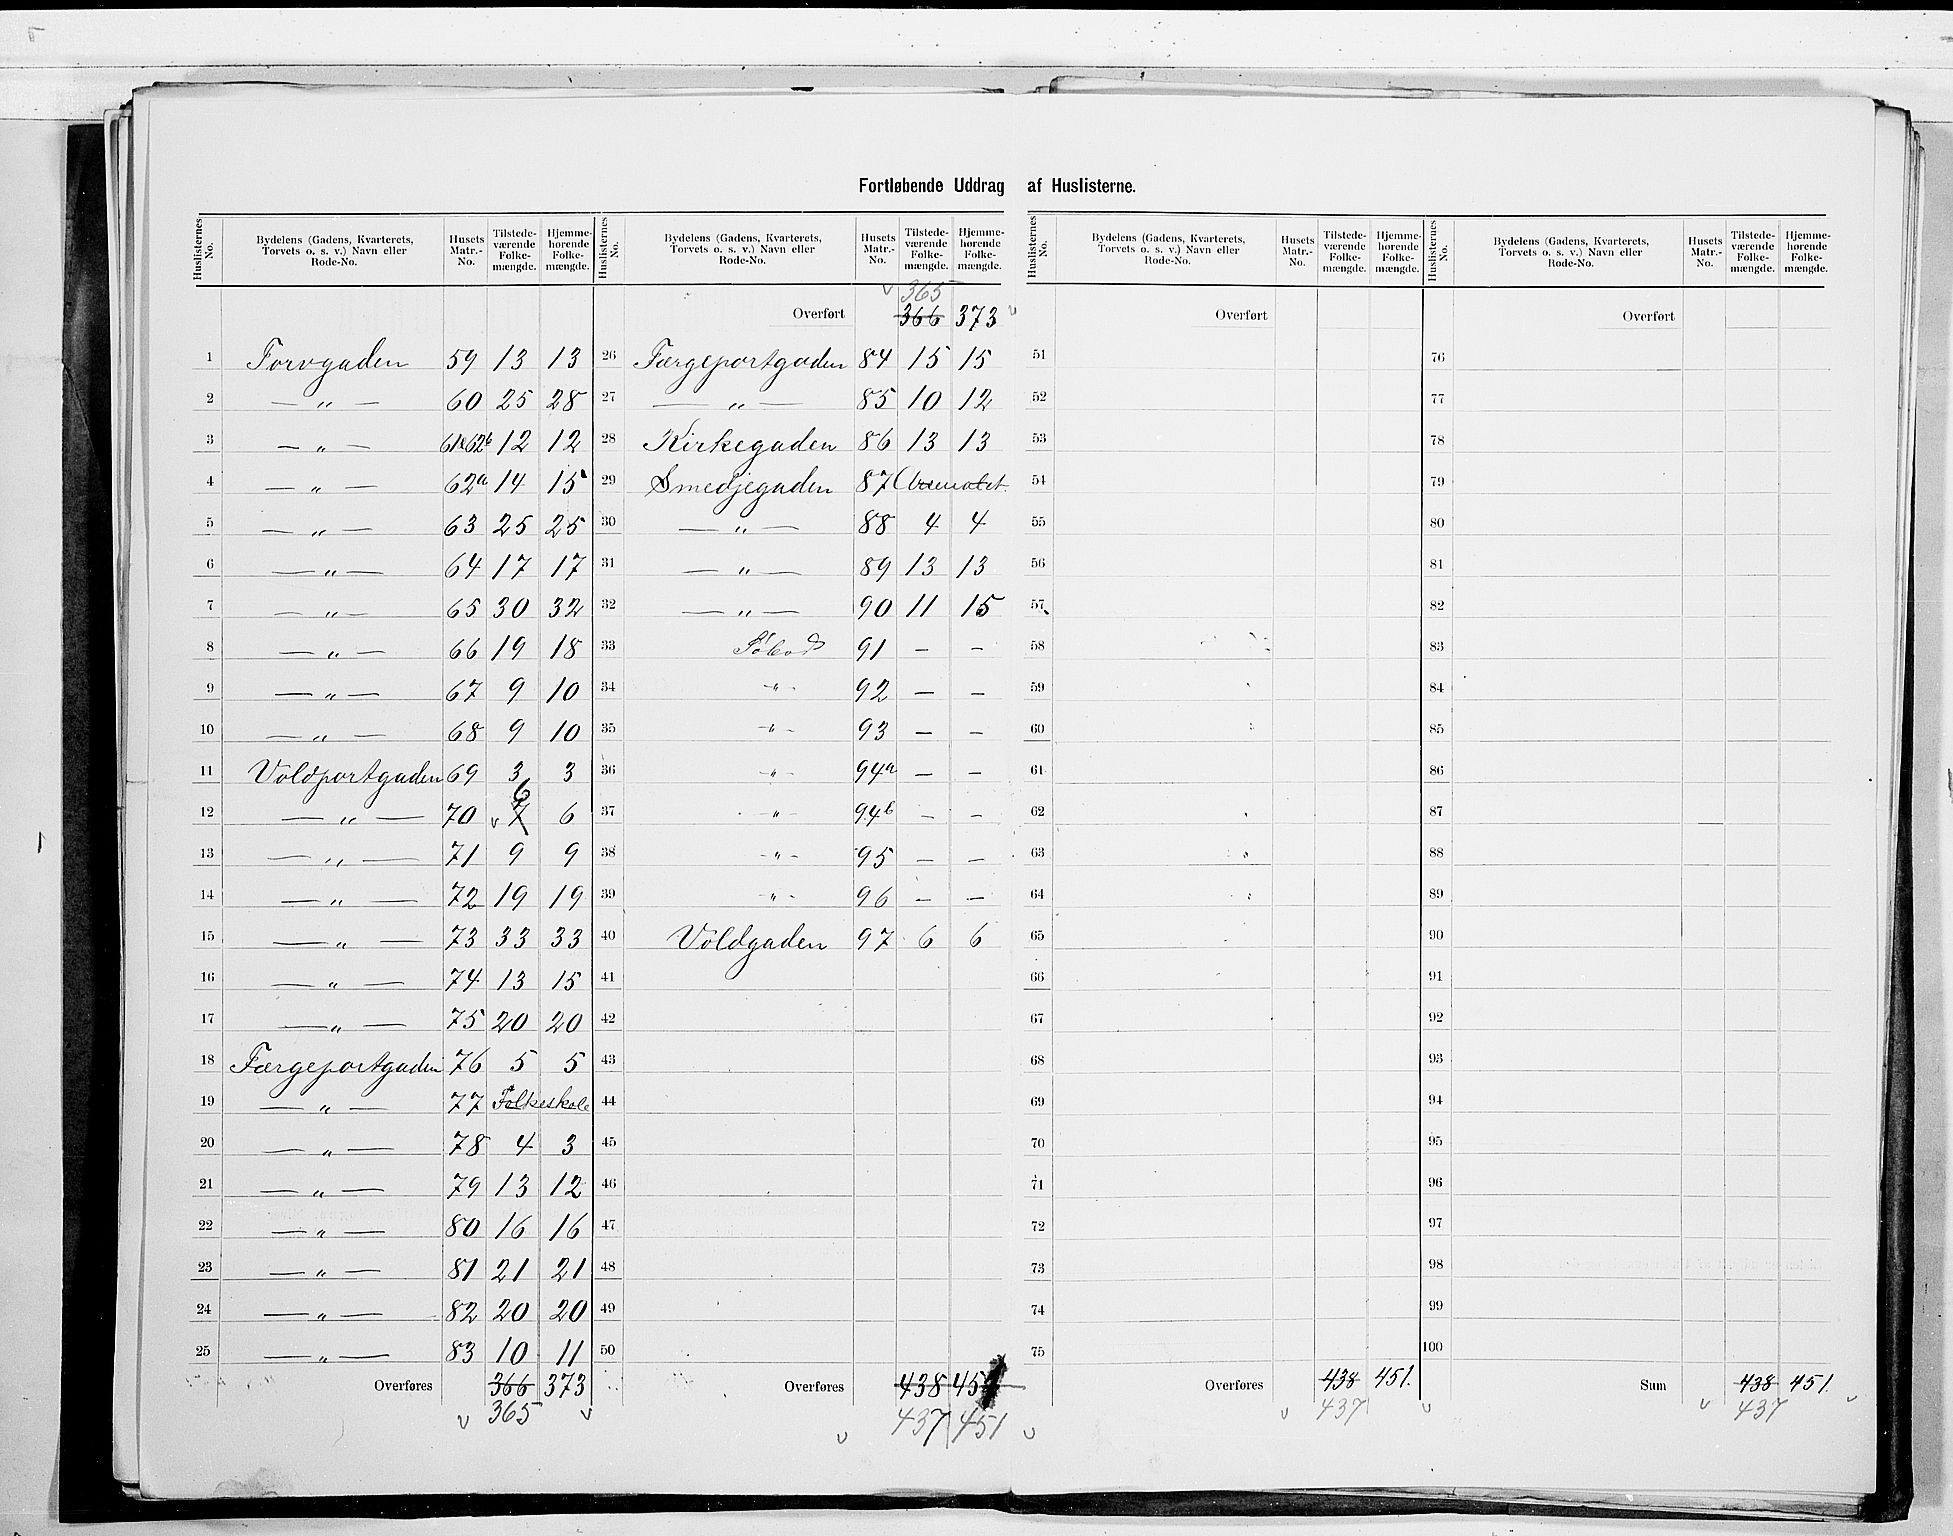 Fortløbende Uddrag af Huslisterne.
Huslisternes No. Bydelens (Gadens, Kvarterets, Torvets o. s. v.) Navn eller Rode-No. Husets Matr.-No. Tilstedeværende Folkemængde. Hjemmehørende Folkemængde.
1 Torvgaden 59 13 13
2 — „ — 60 25 28
3 — „ — 61&62b 12 12
4 — „ — 62a 14 15
5 — „ — 63 25 25
6 — „ — 64 17 17
7 — „ — 65 30 32
8 — „ — 66 19 18
9 — „ — 67 9 10
10 — „ — 68 9 10
11 Voldportgaden 69 3 3
12 — „ — 70 7 6 6
13 — „ — 71 9 9
14 — „ — 72 19 19
15 — „ — 73 33 33
16 — „ — 74 13 15
17 — „ — 75 20 20
18 Færgeportgaden 76 5 5
19 — „ — 77 Folkeskole
20 — „ — 78 4 3
21 — „ — 79 13 12
22 — „ — 80 16 16
23 — „ — 81 21 21
24 — „ — 82 20 20
25 — „ — 83 10 11
Overføres 366 373
365
Huslisternes No. Bydelens (Gadens, Kvarterets, Torvets o. s. v.) Navn eller Rode-No. Husets Matr.-No. Tilstedeværende Folkemængde. Hjemmehørende Folkemængde.
365
Overført 366 373
26 Færgeportgaden 84 15 15
27 — „ — 85 10 12
28 Kirkegaden 86 13 13
29 Smedjegaden 87
30 — „ — 88 4 4
31 — „ — 89 13 13
32 — „ — 90 11 15
33 Søbod 91 — —
34 -„- 92 — —
35 -„- 93 — —
36 -„- 94a — —
37 -„- 94b — —
38 -„- 95 — —
39 -„- 96 — —
40 Voldgaden 97 6 6
41
42
43
44
45
46
47
48
49
50
Overføres 438 451
437 451
Huslisternes No. Bydelens (Gadens, Kvarterets, Torvets o. s. v.) Navn eller Rode-No. Husets Matr.-No. Tilstedeværende Folkemængde. Hjemmehørende Folkemængde.
Overført
51
52
53
54
55
56
57
58
59
60
61
62
63
64
65
66
67
68
69
70
71
72
73
74
75
Overføres 438 451.
437
Huslisternes No. Bydelens (Gadens, Kvarterets, Torvets o. s. v.) Navn eller Rode-No. Husets Matr.-No. Tilstedeværende Folkemængde. Hjemmehørende Folkemængde.
Overført
76
77
78
79
80
81
82
83
84
85
86
87
88
89
90
91
92
93
94
95
96
97
98
99
100
Sum 438 451.
437